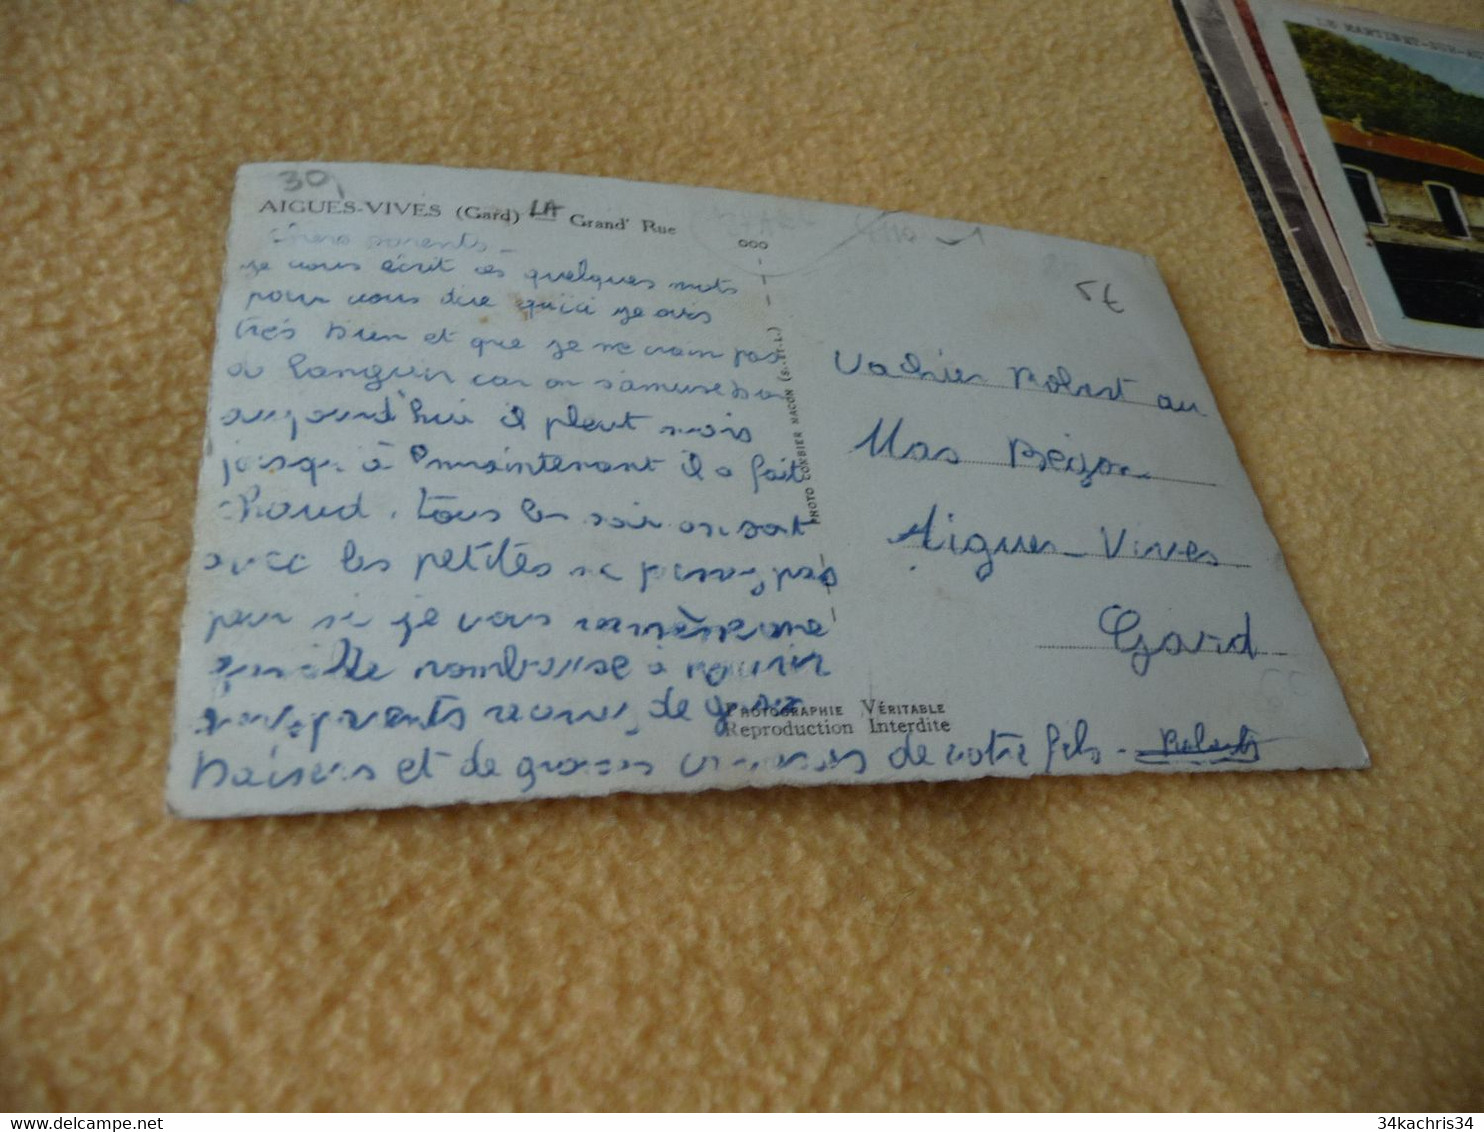 30
AIGUES-VIVES (Gard) LA Grand' Rue
Chers parents -
je vous écrit ces quelques mots
pour vous dire qu'ici je vais
très bien et que je ne crain pas
a languir car on s'amuse bien
aujourd'hui il pleut mais
jusqu à maintenant il a fait
chaud. Tous les soir on sort
avec les petites ne pas
pour si je vous
nombreuse à
recevez de gros
baisers et de grosses de votre fils - Robert
000
PHOTO CORBIER MACON (S.-ET-L.)
PHOTOGRAPHIE VÉRITABLE
Reproduction Interdite
5€
Vachier Robert au
Mas Bégon
Aigues-Vives
Gard
LE MARTINET-SUR-AU
34kachris34